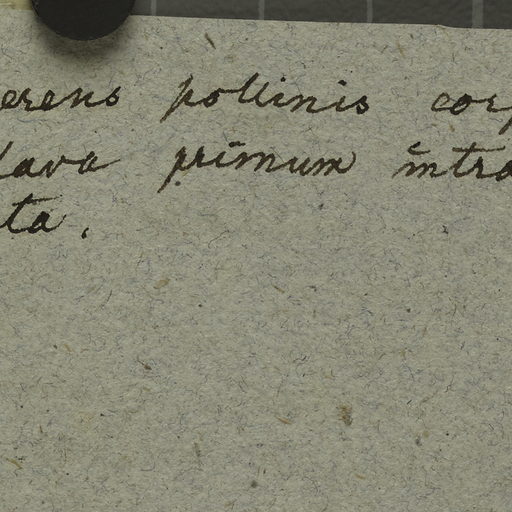 erens pollinis corp
lava primum intra
ta.